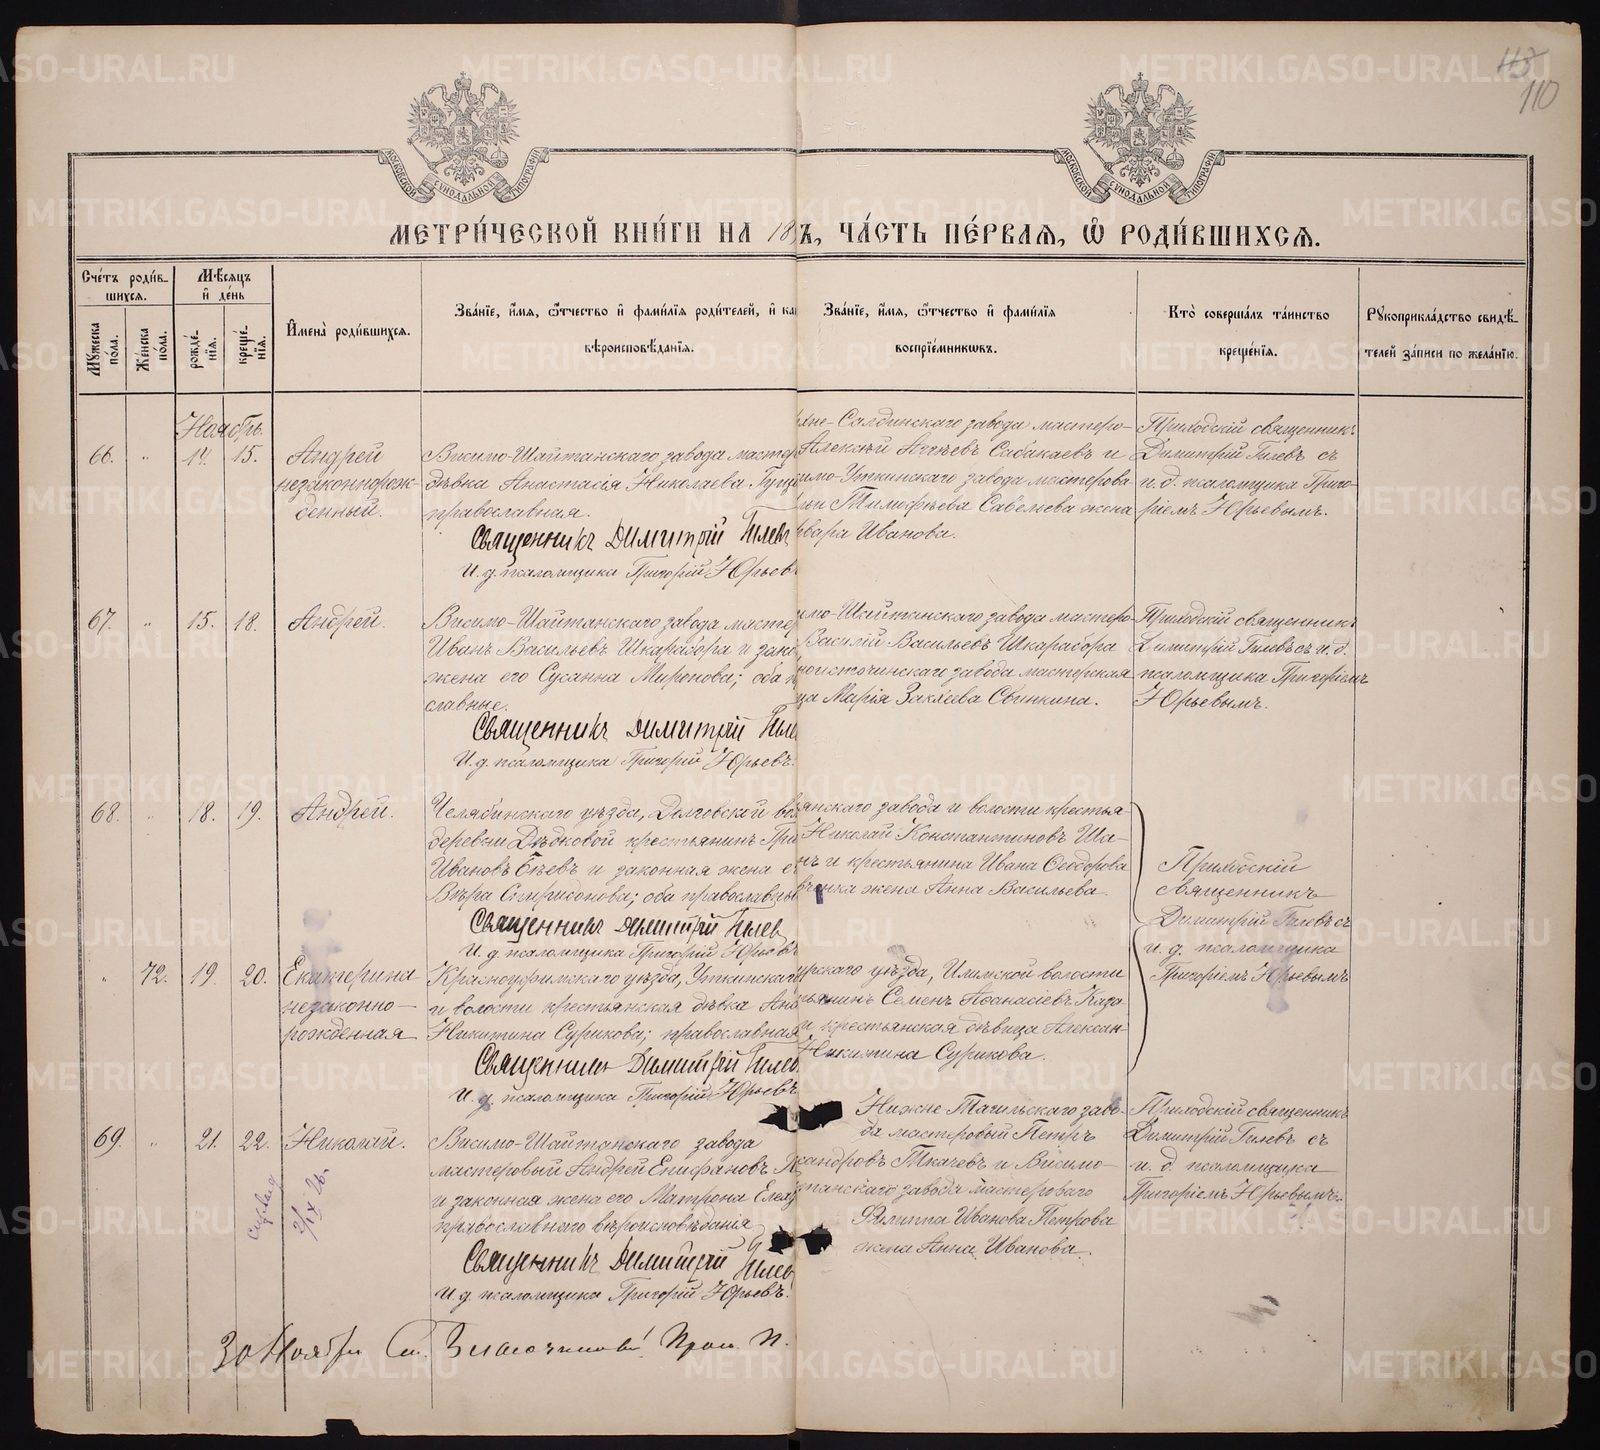 110
МЕТРИ́ЧЕСКОЙ КНИ́ГИ НА 18 Ъ, ЧА́СТЬ ПЕ́РВАЯ, Ѿ РОДИ́ВШИХСЯ.
Сче́тъ роди́в-
шихся.
Мѣсяцъ
и де́нь
Мужеска по́ла.
Же́нска по́ла.
рожде́-
нія.
креще́-
нія.
Имена̀ роди́вшихся.
Зва́ніе, и́мя, ѻ́тчество и фами́лія роди́телей, и ка
вѣроисповѣ́данія.
Зва́ніе, и́мя, ѻ́тчество и фами́лія
воспріе́мниковъ.
Кто̀ соверша́лъ та́инство
креще́нія.
Рукоприкла́дство свидѣ́-
телей за́писи по жела́нію.
Ноябрь.
66. " 14. 15.
Андрей
незаконнорож-
денный.
Висимо-Шайтанскаго завода мастер
дѣвка Анастасія Николаева
православная.
Священникъ Димитрій Гилевъ
И. д. псаломщика Григорій Юрьевъ
хне-Салдинскаго завода мастеро-
Алексѣй Агѣевъ Сабакаевъ и
имо-Уткинскаго завода мастерова-
Тимофѣева Савельева жена
рвара Иванова.
Приходскій священникъ
Димитрій Гилевъ съ
и. д. псаломщика Григо-
ріемъ Юрьевымъ.
67. " 15. 18.
Андрей.
Висимо-Шайтанскаго завода мастер
Иванъ Васильевъ Шкарабора и зако
жена его Сусанна Миронова; оба п
славные.
Священникъ Димитрій Гиле
И. д. псаломщика Григорій Юрьевъ.
имо-Шайтанскаго завода мастеро-
Василій Васильевъ Шкарабора
ноисточинскаго завода мастерская
ца Марія Закѣева Свинкина.
Приходскій священникъ
Димитрій Гилевъ съ и. д.
псаломщика Григоріемъ
Юрьевымъ.
68. " 18. 19.
Андрей.
Челябинскаго уѣзда, Долговской вол
деревни Дѣдковой крестьянинъ Гри
Ивановъ Бѣевъ и законная жена е
Вѣра Спиридонова; оба православны
Священникъ Димитрій Гилев
И. д. псаломщика Григорій Юрьевъ
янскаго завода и волости крестья-
Николай Константиновъ Ша-
нъ и крестьянина Ивана Ѳеодорова
жена Анна Васильева.
Приходскій
священникъ
Димитрій Гилевъ съ
и. д. псаломщика
Григоріемъ Юрьевымъ
" 72. 19. 20.
Екатерина
незаконно-
рожденная
Красноуфимскаго уѣзда, Уткинскаго
и волости крестьянская дѣвка Ана
Никитина Сурикова; православная
Священникъ Димитрій Гилев
И. д. псаломщика Григорій Юрьевъ
урскаго уѣзда, Илимской волости
тьянинъ Семенъ Аѳанасіевъ Каза-
и крестьянская дѣвица Алексан-
Никитина Сурикова.
69. " 21. 22.
Николай.
Висимо-Шайтанскаго завода
мастеровый Андрей Епифановъ
и законная жена его Матрона Елеаз
православнаго вѣроисповѣданія
Священникъ Димитрій Гилев
И. д. псаломщика Григорій Юрьевъ.
Нижне Тагильскаго заво-
да мастеровый Петръ
сандровъ Ткачевъ и Висимо-
танскаго завода мастероваго
Филиппа Иванова Петрова
жена Анна Иванова.
Приходскій священникъ
Димитрій Гилевъ съ
и. д. псаломщика
Григоріемъ Юрьевымъ.
30 Ноября
METRIKI.GASO-URAL.RU